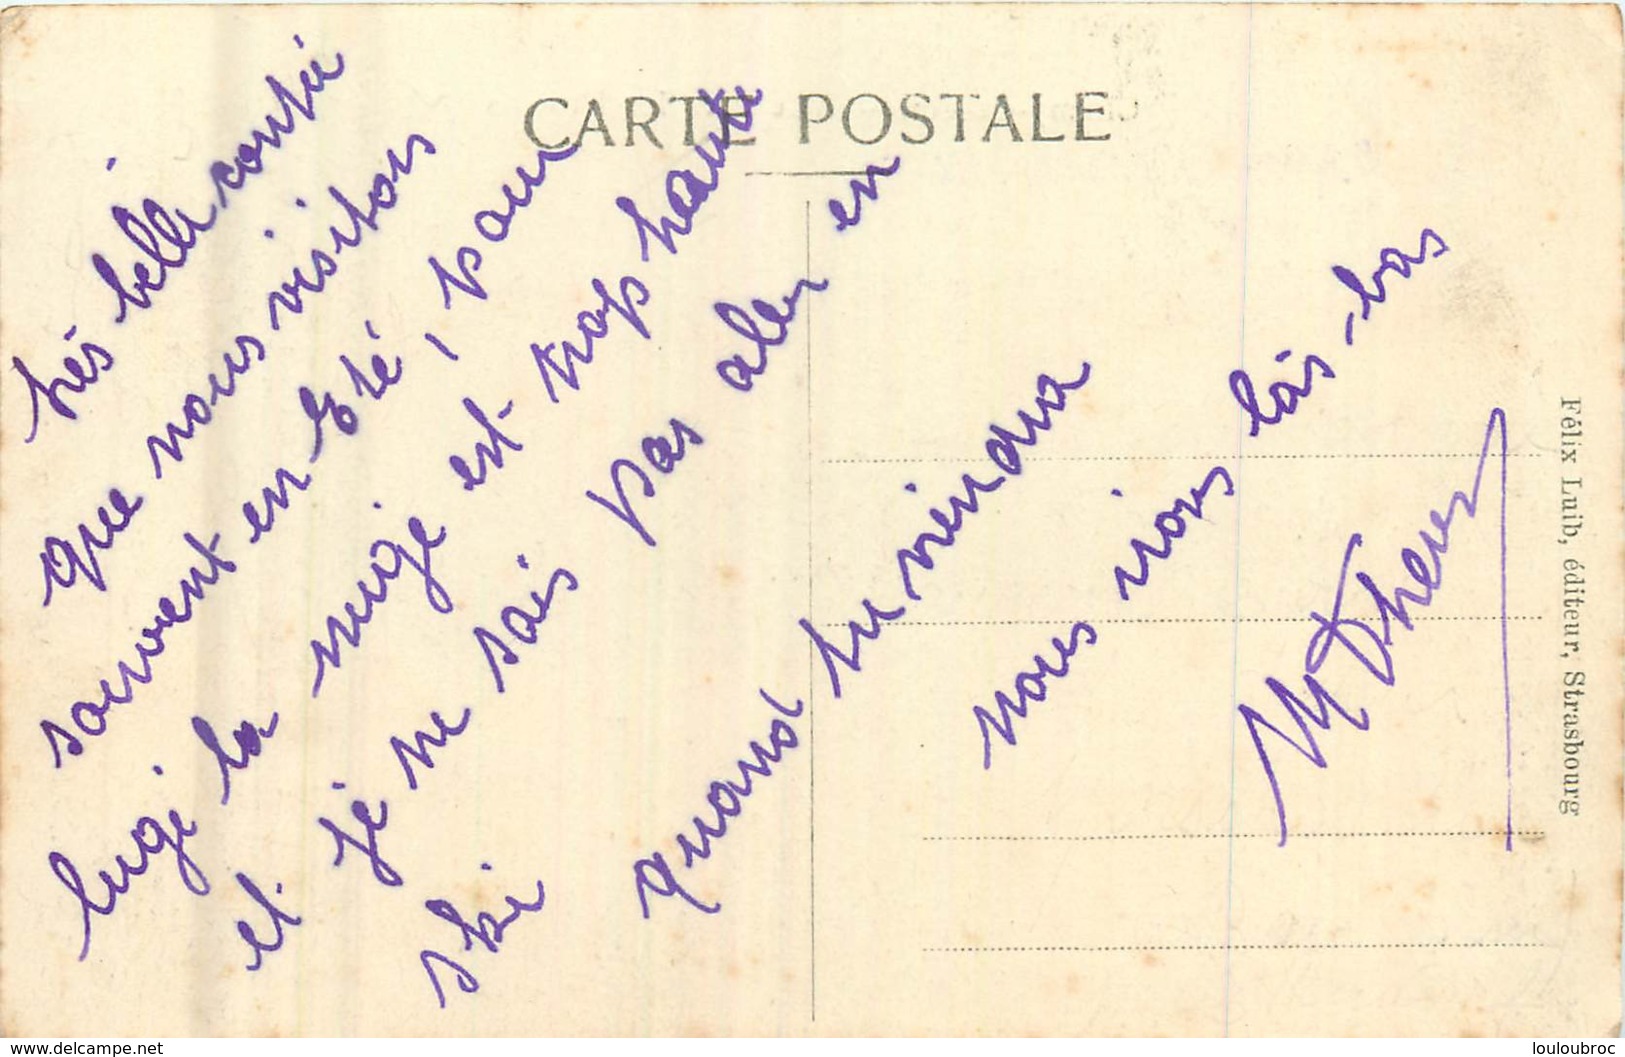 CARTE POSTALE
très belle contrée
que nous visitons
souvent en Eté, pour
luge la neige est trop haute
et je ne sais pas aller en
ski
quand tu viendra
nous irons lais-bas
Félix Luib, éditeur, Strasbourg
www.delcampe.net
louloubroc